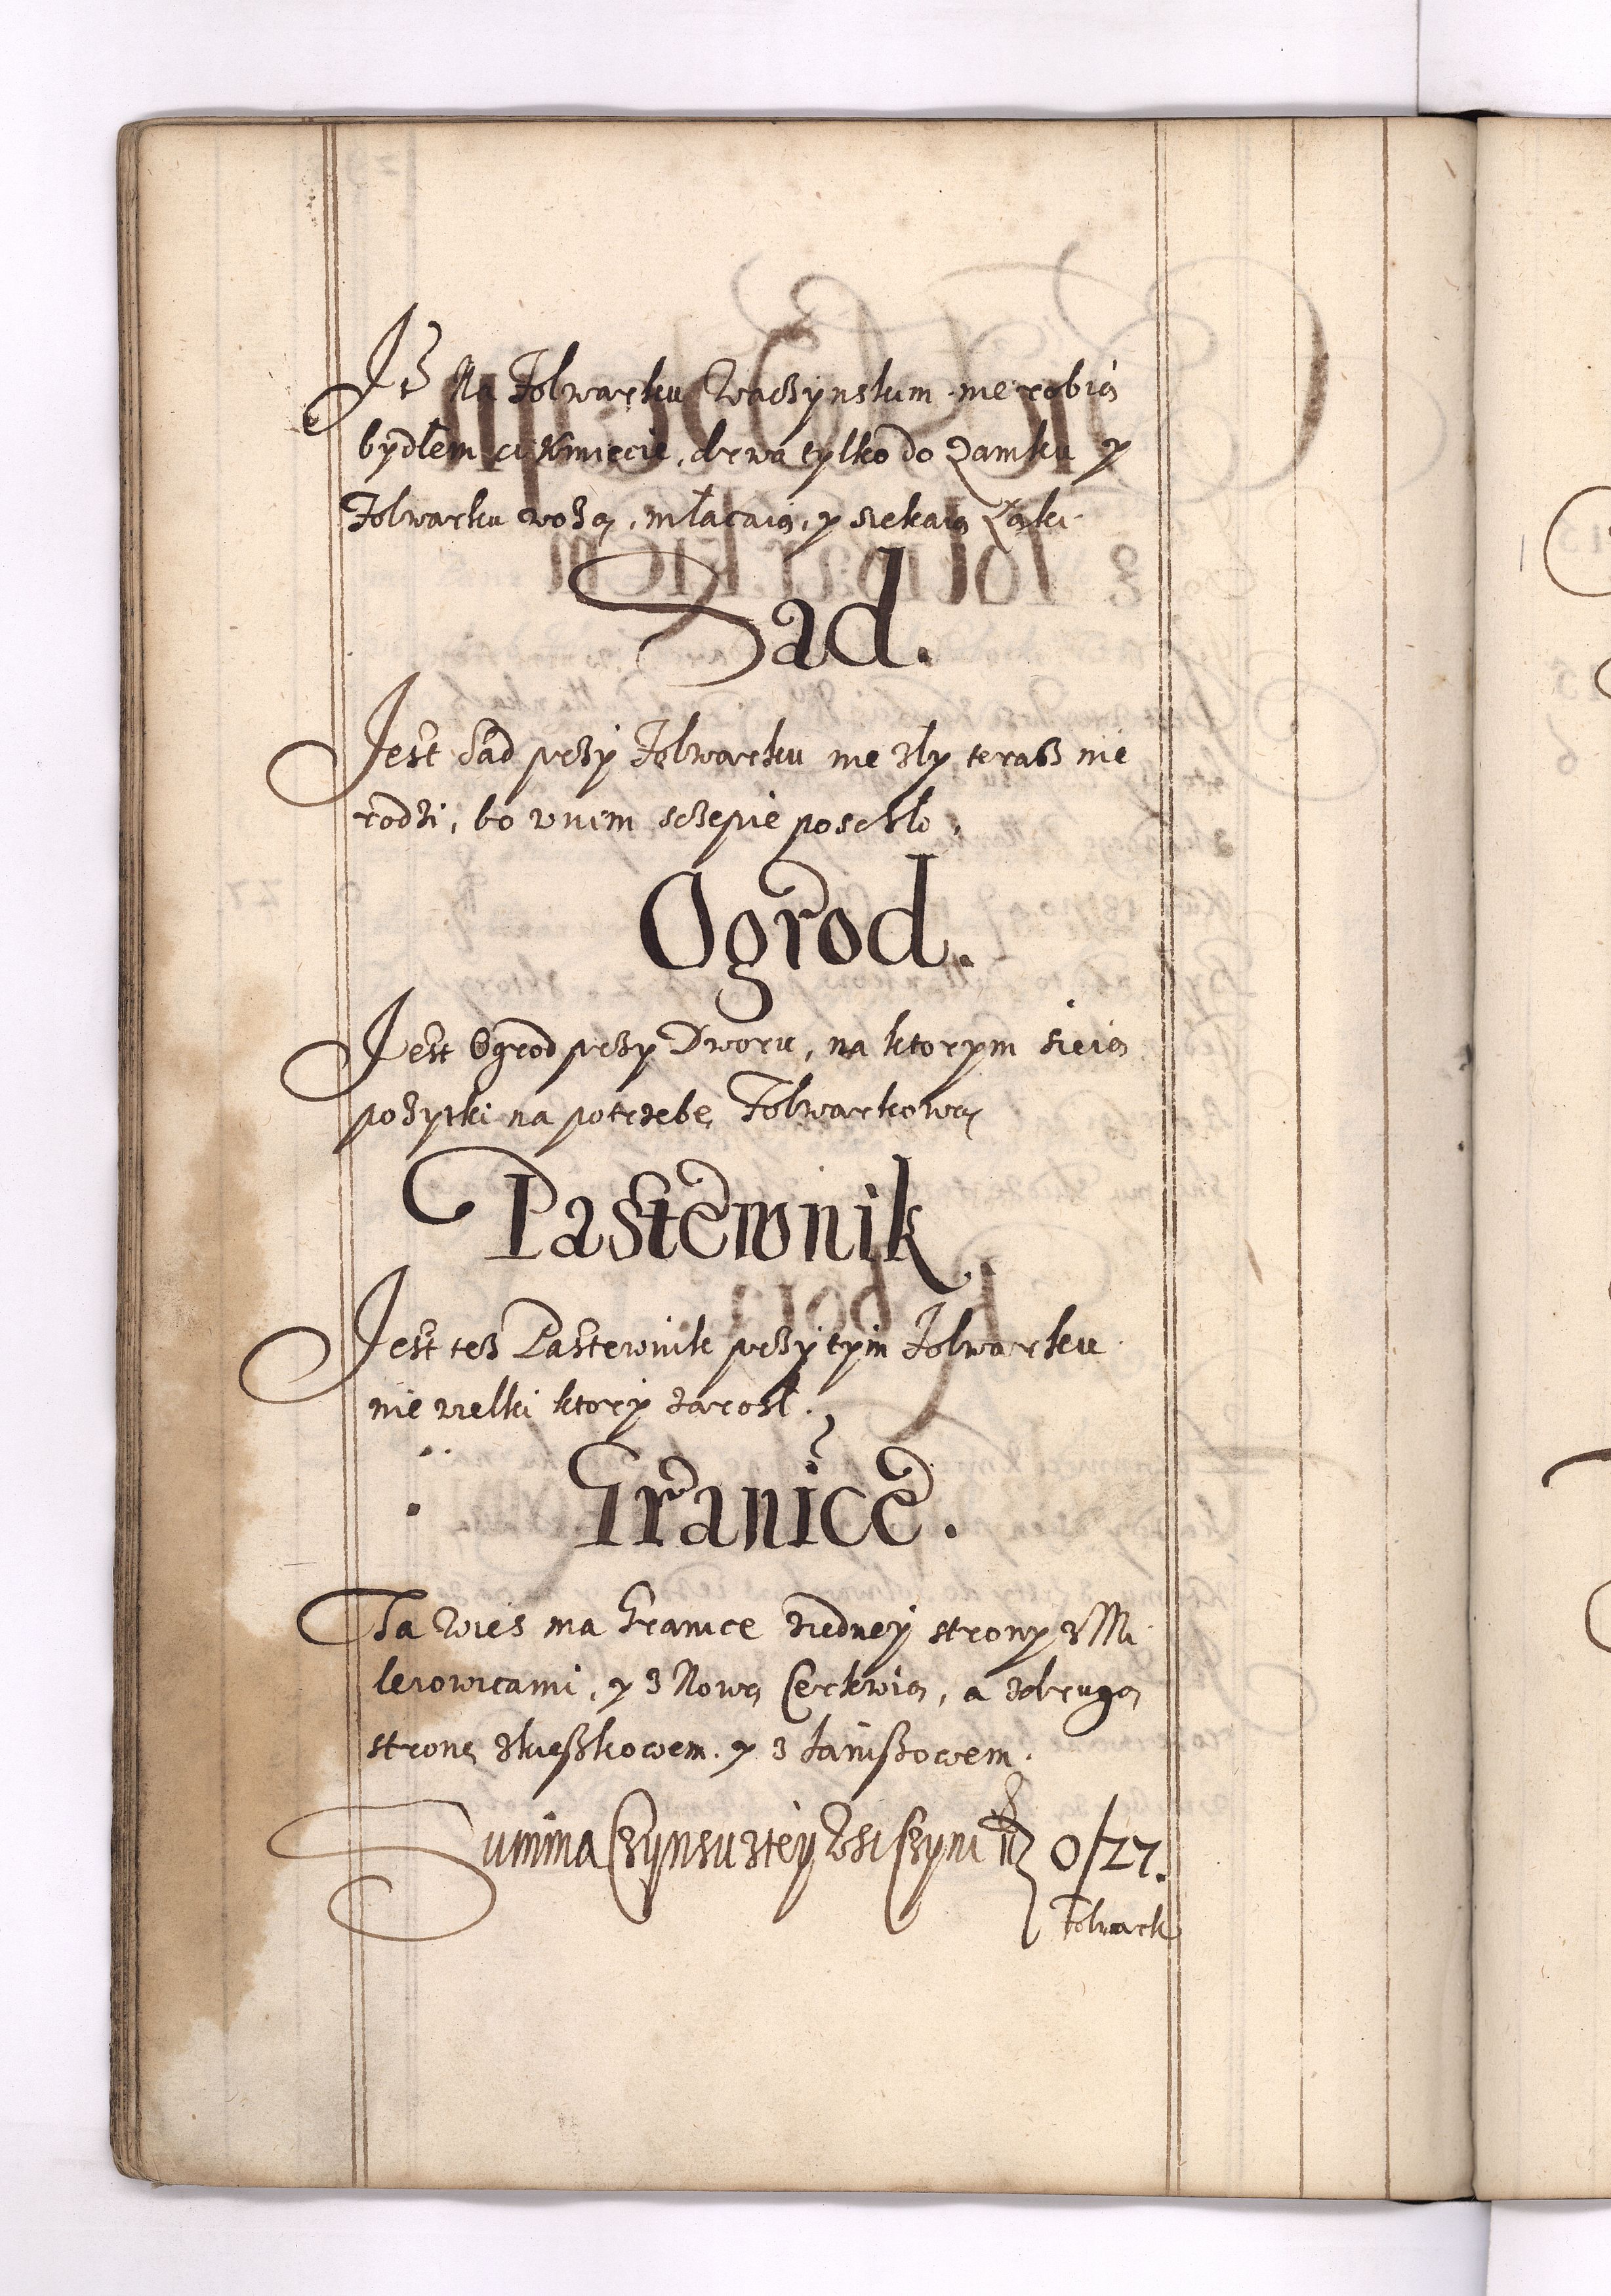 Iż Na Folwarku Waszynskim nie robią
bydłem ci Kmiecie, drwa tylko do Zamku y
Folwarku wożą, młacaią, y siekaią Łąki
Sad.
Jest Sad przy Folwarku nie zly terasz nie
rodzi, bo wnim sczepie poschło,
Ogrod.
Jest Ogrod przy Dworu, na ktorym sieią
pożytki na potrzebę Folwarkową
Pastewnik
Jest tesz Pastewnik przy tym Folwarku
nie wielki ktory zarosł.
Granice.
Ta Wies ma Granice ziedney strony z Mi
lerowicami, y z Nową Cerkwią, a zdrugą
stronę zkieszkowem. y z Janiszowem.
Summa Czynsu ztey Wsi Czyni 0/27.
Folwark